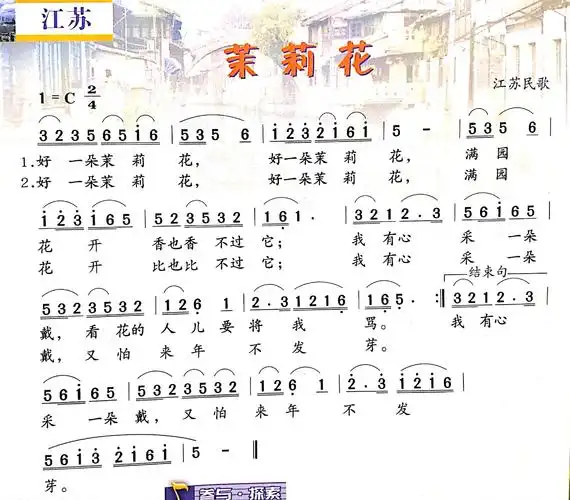 江苏
茉莉花
1=C 2/4
江苏民歌
3 2 3 5 6 5 i 6 | 5 3 5 6 | i 2̇ 3̇ 2̇ i 6 i | 5 - | 5 3 5 6 |
1.好 一朵茉 莉 花, 好一朵茉 莉 花, 满 园
2.好 一朵茉 莉 花, 好一朵茉 莉 花, 满 园
i 2̇ 3̇ i 6 5 | 5 2 3 5 3 2 | 1 6̣ 1 . | 3 2 1 2 . 3 | 5 6 i 6 5 |
花 开 香也香 不过 它; 我 有心 采 一朵
花 开 比也比 不过 它; 我 有心 采 一朵
结束句
5 3 2 3 5 3 2 | 1 2 6̣ 1 | 2 . 3 1 2 1 6̣ | 1 6̣ 5̣ . :‖ 3 2 1 2 . 3 |
戴, 看 花的 人 儿 要 将 我 骂。 我 有心
戴, 又 怕 来 年 不 发 芽。
5 6 i 6 5 | 5 3 2 3 5 3 2 | 1 2 6̣ 1 | 2̇ . 3̇ i 2̇ i 6 |
采 一朵 戴, 又 怕 来 年 不 发
5 6 i 3̇ 2̇ i 6 i | 5 - ‖
芽。
参与·探索